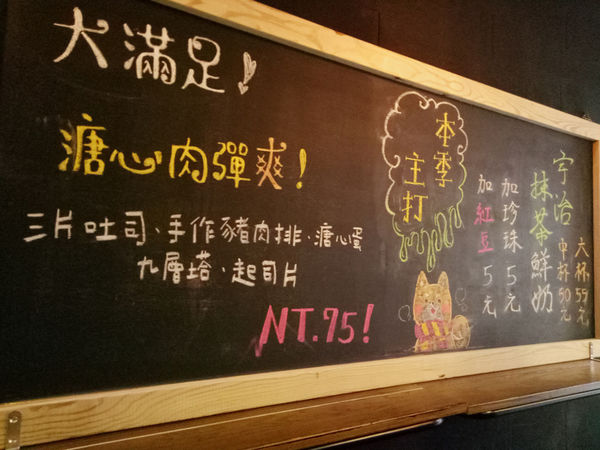 犬滿足!
溏心肉彈爽!
三片吐司、手作豬肉排、溏心蛋
九層塔、起司片
NT.95!
本季
主打
宇治
抹茶鮮奶
大杯55元
中杯50元
加珍珠5元
加紅豆5元